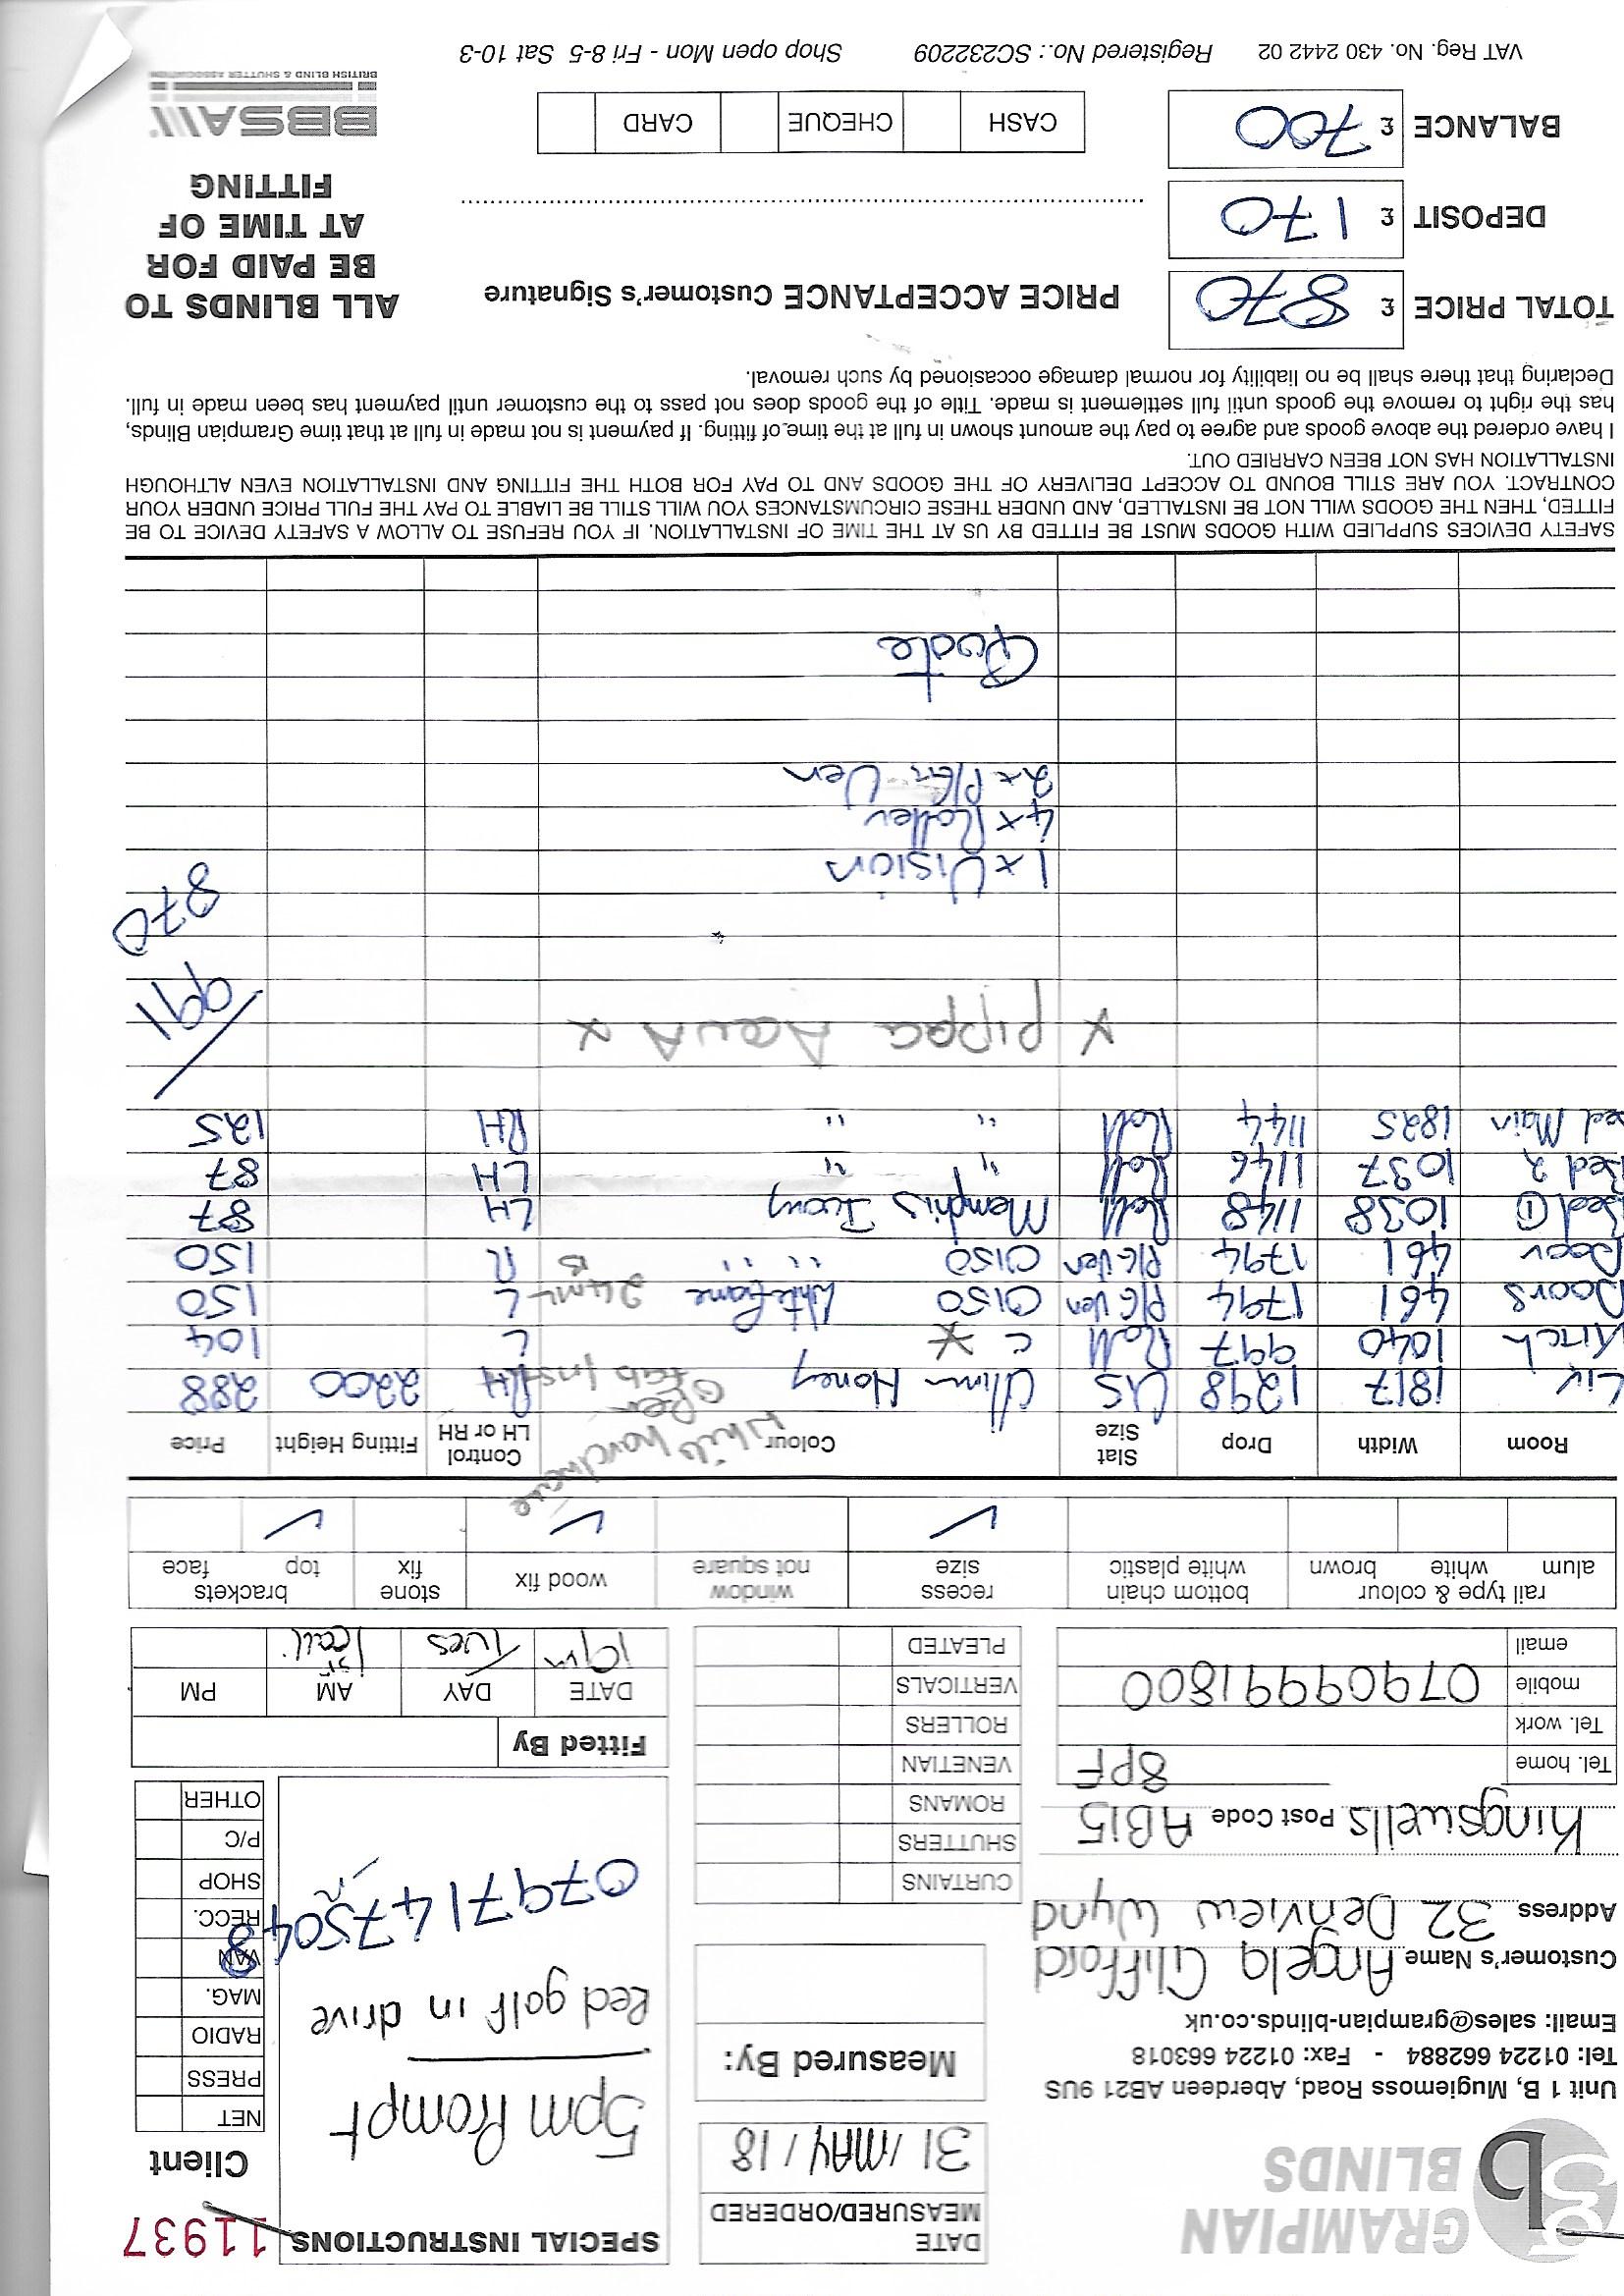 GRAMPIAN BLINDS
gr b
Unit 1 B, Mugiemoss Road, Aberdeen AB21 9US
Tel: 01224 662884 - Fax: 01224 663018
Email: sales@grampian-blinds.co.uk
Customer's Name Angela Clifford
Address 32 Denview Wynd
Kingswells Post Code AB15
8PF
Tel. home
Tel. work
mobile 07909991800
email
DATE MEASURED/ORDERED
31 / MAY / 18
Measured By:
CURTAINS
SHUTTERS
ROMANS
VENETIAN
ROLLERS
VERTICALS
PLEATED
SPECIAL INSTRUCTIONS
11937
5pm Prompt
Red golf in drive
07971475048
Client
NET
PRESS
RADIO
MAG.
VAN
RECC.
SHOP
P/C
OTHER
Fitted By
DATE DAY AM PM
Tues 1st call
rail type & colour bottom chain recess window wood fix stone brackets
alum white brown white plastic size not square fix top face
✓ ✓ ✓
Room Width Drop Slat Size Colour Control LH or RH Fitting Height Price
White hardware
Liv 1817 1298 VIS Honey Open RH 2200 288
Kitch 1040 997 Roll C * L 104
Doors 461 1794 P/G Ven 0150 White frame 24mm L 150
Door 461 1794 P/G Ven 0150 " " R 150
Bed ① 1038 1148 Roll Memphis Ivory LH 87
Bed 2 1037 1146 Roll " " LH 87
Bed Main 1825 1144 Roll " " RH 125
* Pippa Aqua *
991
870
1 x Vision
4 x Roller
2 x P/G Ven
Quote
SAFETY DEVICES SUPPLIED WITH GOODS MUST BE FITTED BY US AT THE TIME OF INSTALLATION. IF YOU REFUSE TO ALLOW A SAFETY DEVICE TO BE
FITTED, THEN THE GOODS WILL NOT BE INSTALLED, AND UNDER THESE CIRCUMSTANCES YOU WILL STILL BE LIABLE TO PAY THE FULL PRICE UNDER YOUR
CONTRACT. YOU ARE STILL BOUND TO ACCEPT DELIVERY OF THE GOODS AND TO PAY FOR BOTH THE FITTING AND INSTALLATION EVEN ALTHOUGH
INSTALLATION HAS NOT BEEN CARRIED OUT.
I have ordered the above goods and agree to pay the amount shown in full at the time of fitting. If payment is not made in full at that time Grampian Blinds,
has the right to remove the goods until full settlement is made. Title of the goods does not pass to the customer until payment has been made in full.
Declaring that there shall be no liability for normal damage occasioned by such removal.
TOTAL PRICE £ 870
DEPOSIT £ 170
BALANCE £ 700
PRICE ACCEPTANCE Customer's Signature
CASH CHEQUE CARD
ALL BLINDS TO
BE PAID FOR
AT TIME OF
FITTING
BBSA
BRITISH BLIND & SHUTTER ASSOCIATION
VAT Reg. No. 430 2442 02 Registered No.: SC232209 Shop open Mon - Fri 8-5 Sat 10-3